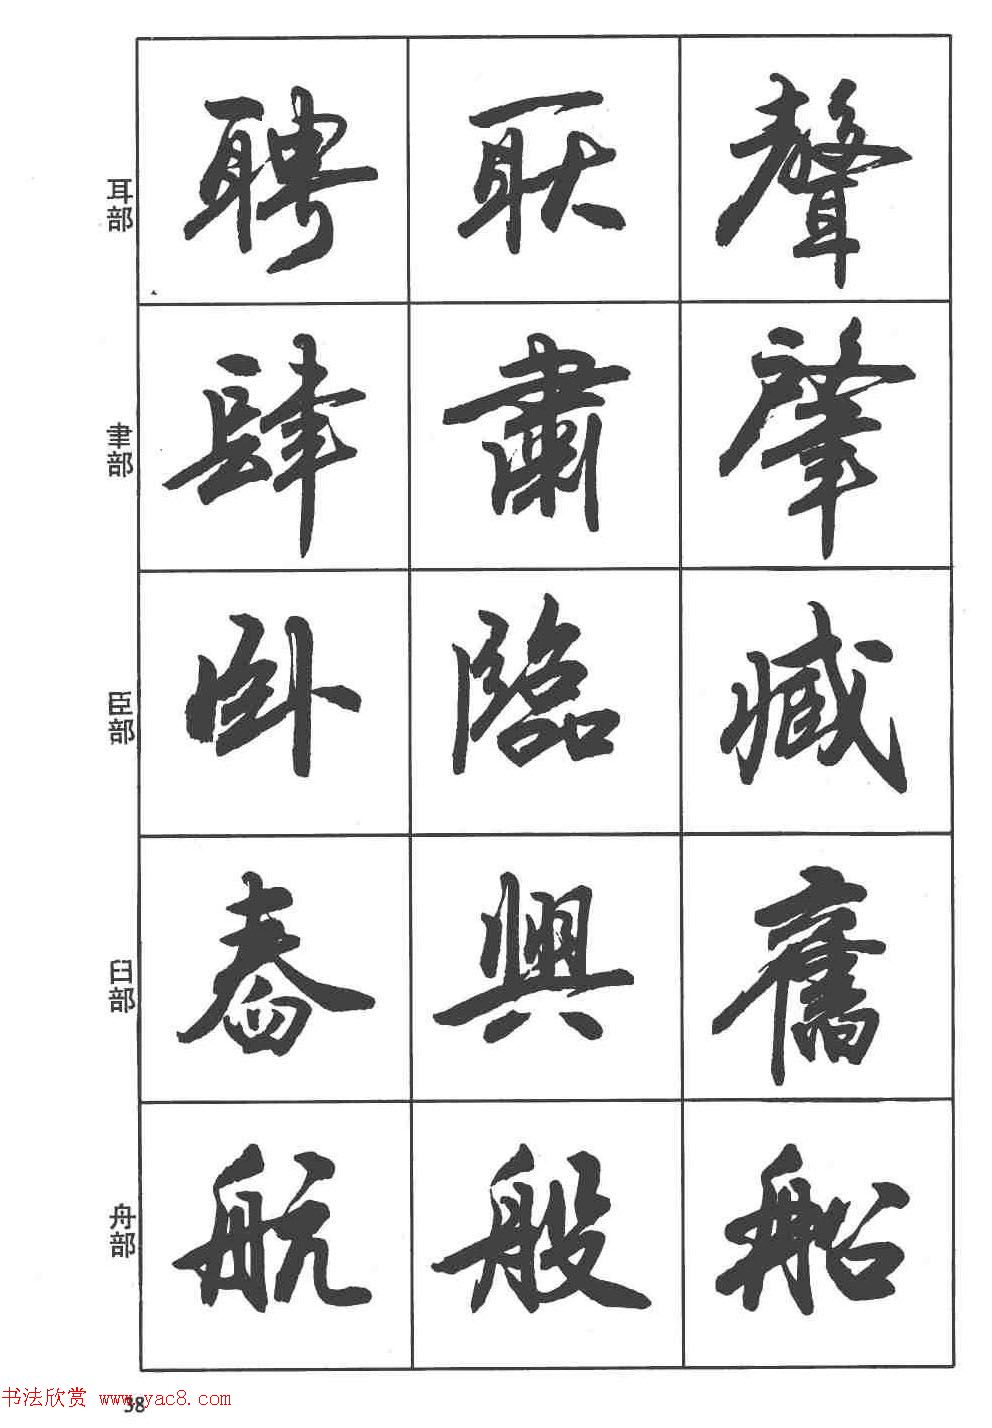 耳部 聘 耿 聲
聿部 肆 肅 肇
臣部 臥 臨 臧
臼部 舂 興 舊
舟部 航 般 船
书法欣赏 www.yac8.com
38